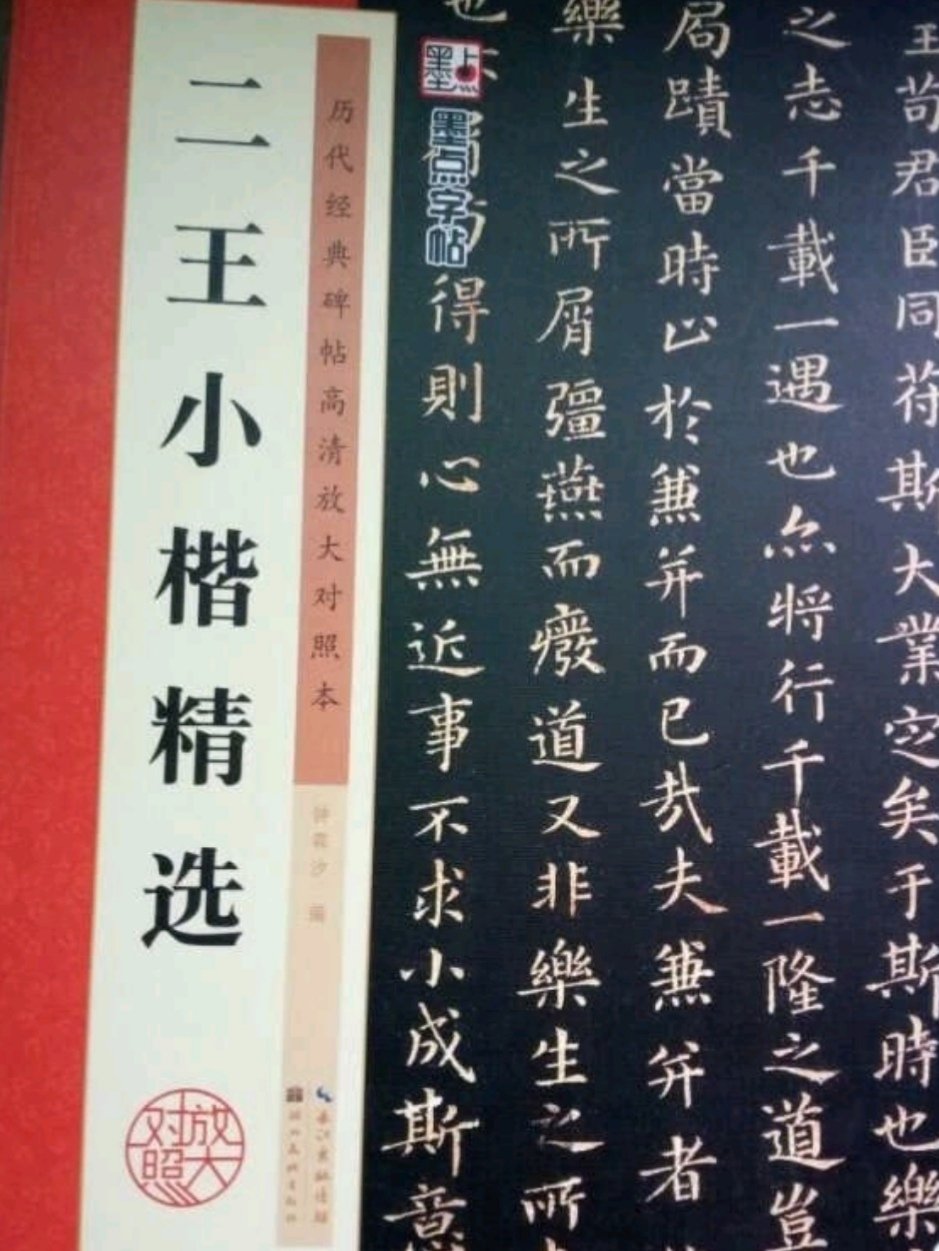 二王小楷精选
历代经典碑帖高清放大对照本
钟 编
长江出版传媒
湖北美术出版社
放大对照
墨点
墨点字帖
王苟君臣同符斯大業定矣于斯時也樂
之志千載一遇也亦將行千載一隆之道豈
局蹟當時止於兼并而已哉夫兼并者
樂生之所屑彊燕而廢道又非樂生之所
也 得則心無近事不求小成斯意